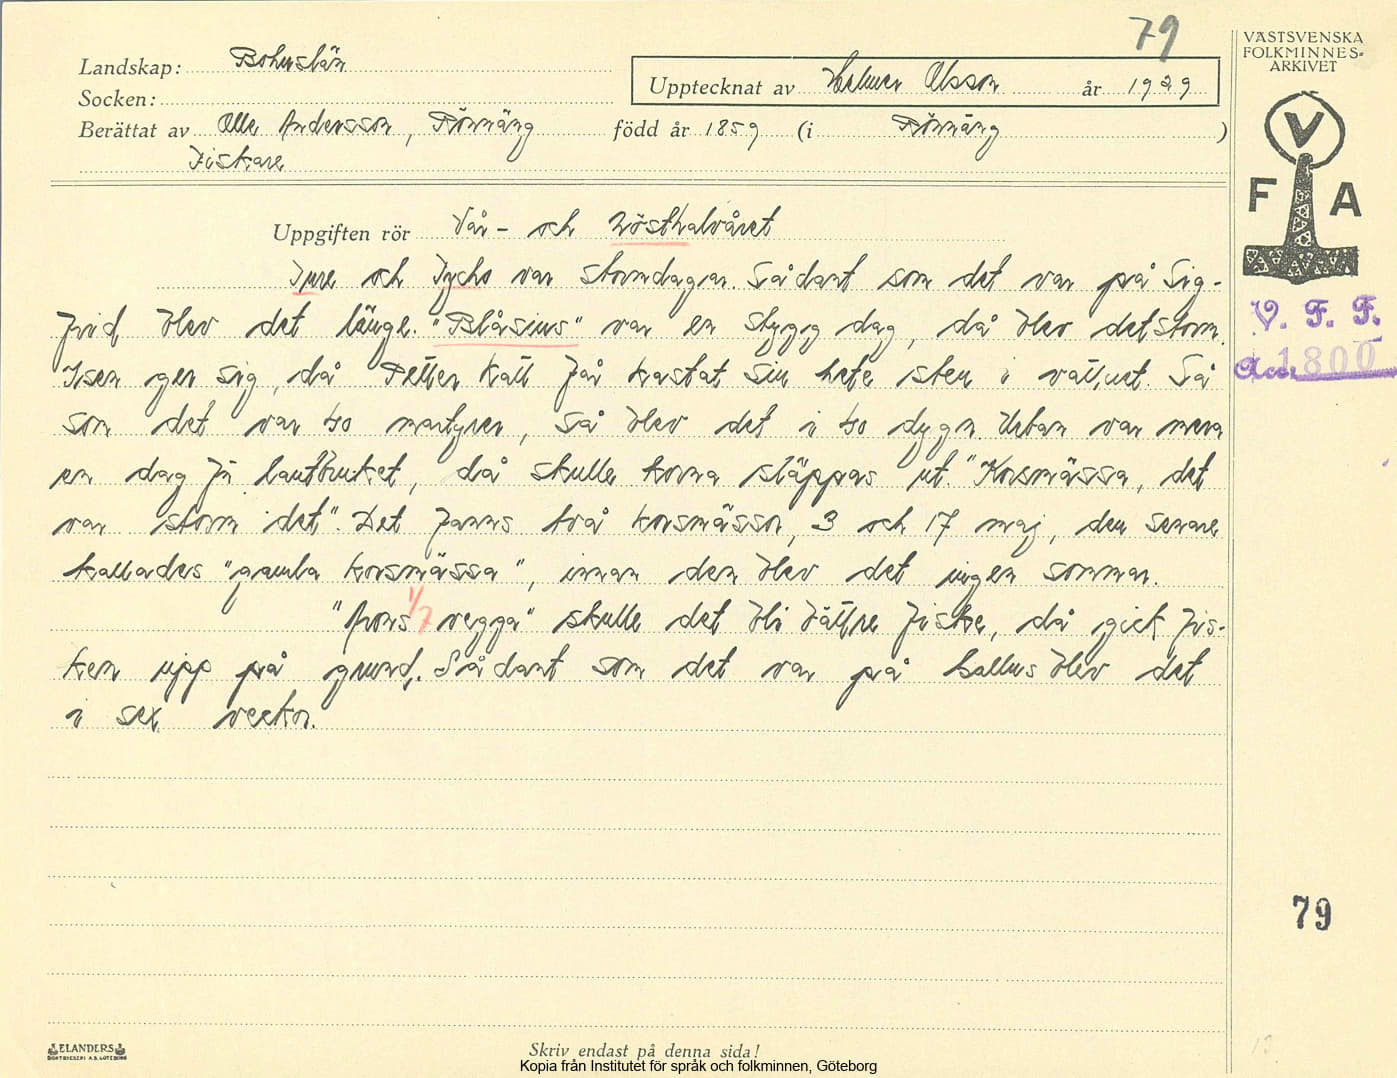 79
VÄSTSVENSKA
FOLKMINNES=
ARKIVET
Landskap: Bohuslän
Upptecknat av Helmer Olsson år 1929
Socken:
Berättat av Olle Andersson, Rönnäng född år 1859 (i Rönnäng)
Fiskare
V
F A
Uppgiften rör Vår- och hösthalvåret
Ture och Tycho var stormdagar. Sådant som det var på Sig-
frid blev det länge. "Blåsius" var en stygg dag, då blev det storm.
Isen ger sig, då Petter Katt får kastat sin hete sten i vattnet. Så
som det var 40 martyrer, så blev det i 40 dygn. Urban var mera
en dag för lantbruket, då skulle korna släppas ut. "Korsmässa, det
var storm det". Det fanns två korsmässor, 3 och 17 maj, den senare
kallades "gamla korsmässa", innan den blev det ingen sommar.
1/7
"Arons vegga" skulle det bli bättre fiske, då gick fis-
ken upp på grund. Sådant som det var på Kallus blev det
i sex veckor.
V. F. F.
Acc. 1800
79
ELANDERS
BOKTRYCKERI A.B. GÖTEBORG
Skriv endast på denna sida!
Kopia från Institutet för språk och folkminnen, Göteborg